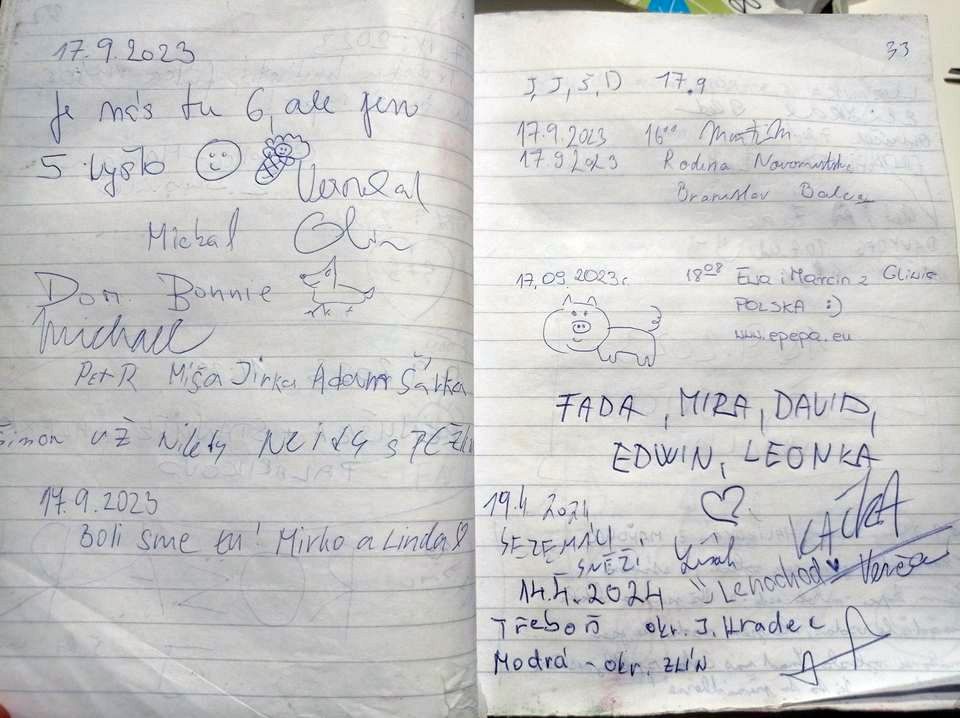 17.9.2023
Je nás tu 6, ale jen
5 vyšlo
Michal
Dom. Bonnie
Michael
Petr R Míša Jirka Adam Šárka
Šimon už nikdy nejdu s
17.9.2023
Boli sme tu! Mirko a Linda
33
J, J, Š, D 17.9
17.9.2023 16⁰⁰
17.9.2023 Rodina
Branislav
17.09.2023r. 18⁰⁸ Ewa i Marcin z Gliwic
POLSKA :)
www.epepa.eu
FADA, MIRA, DAVID,
EDWIN, LEONKA
19.4 2024
SNĚŽÍ
KAČKA
Lenochod
14.4.2024
Třeboň okr. J. Hradec
Modrá - okr. ZLÍN